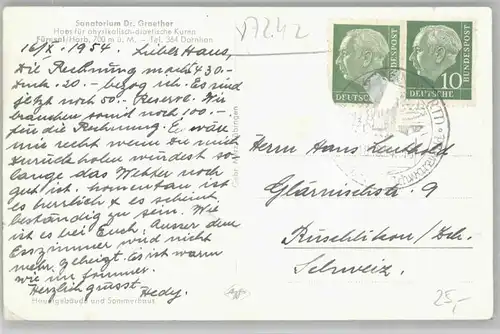 Sanatorium Dr. Graether
Haus für physikalisch-diätetische Kuren
Fürnsal/Horb, 700 m ü. M. – Tel. 384 Dornhan
V7242
16/X. 1954. Liebes Hans,
Die Rechnung macht 430.-
20.- bezog ich. Es sind
jetzt noch 50.- Reserve. Wir
brauchen somit noch 100.-
für die Rechnung. Es wäre
mir recht wenn Du mich
zurückholen würdest so-
lange das Wetter noch
gut ist. momentan ist
es herrlich & es scheint
beständig zu sein. Wie
ist es bei Euch? Ausser dem
Esszimmer wird nicht
mehr geheizt. Es ist warm
wie im Sommer.
Herzlich grüsst Hedy.
Hauptgebäude und Sonnenhaus
DEUTSCHE BUNDESPOST
10
DEUTSCHE BUNDESPOST
Herrn Hans Leuthold
Glärnischstr. 9
Rüschlikon/Zch.
Schweiz.
25,-